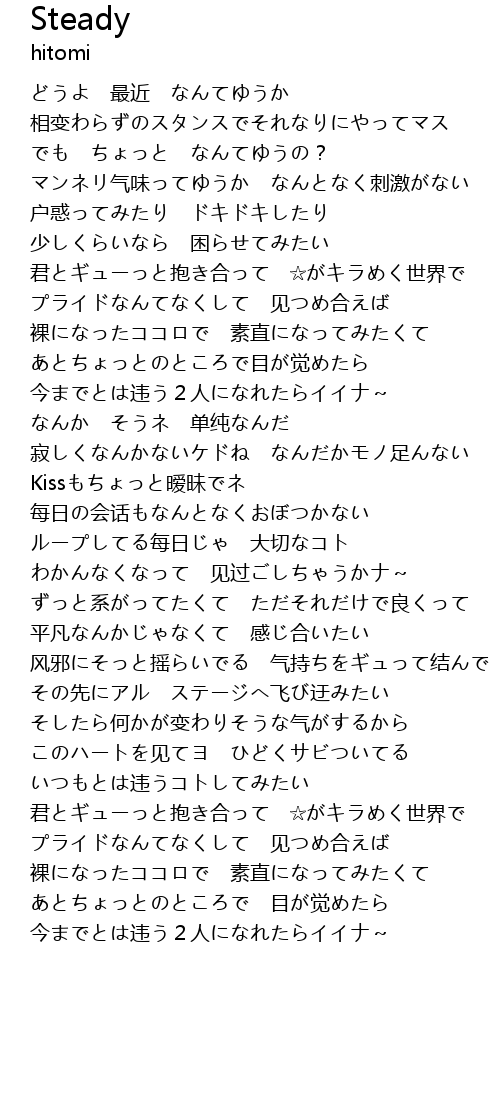 Steady
hitomi
どうよ　最近　なんてゆうか
相变わらずのスタンスでそれなりにやってマス
でも　ちょっと　なんてゆうの？
マンネリ气味ってゆうか　なんとなく刺激がない
户惑ってみたり　ドキドキしたり
少しくらいなら　困らせてみたい
君とギューっと抱き合って　☆がキラめく世界で
プライドなんてなくして　见つめ合えば
裸になったココロで　素直になってみたくて
あとちょっとのところで目が觉めたら
今までとは违う２人になれたらイイナ～
なんか　そうネ　单纯なんだ
寂しくなんかないケドね　なんだかモノ足んない
Kissもちょっと暧昧でネ
每日の会话もなんとなくおぼつかない
ループしてる每日じゃ　大切なコト
わかんなくなって　见过ごしちゃうかナ～
ずっと系がってたくて　ただそれだけで良くって
平凡なんかじゃなくて　感じ合いたい
风邪にそっと摇らいでる　气持ちをギュって结んで
その先にアル　ステージへ飞び迂みたい
そしたら何かが变わりそうな气がするから
このハートを见てヨ　ひどくサビついてる
いつもとは违うコトしてみたい
君とギューっと抱き合って　☆がキラめく世界で
プライドなんてなくして　见つめ合えば
裸になったココロで　素直になってみたくて
あとちょっとのところで　目が觉めたら
今までとは违う２人になれたらイイナ～